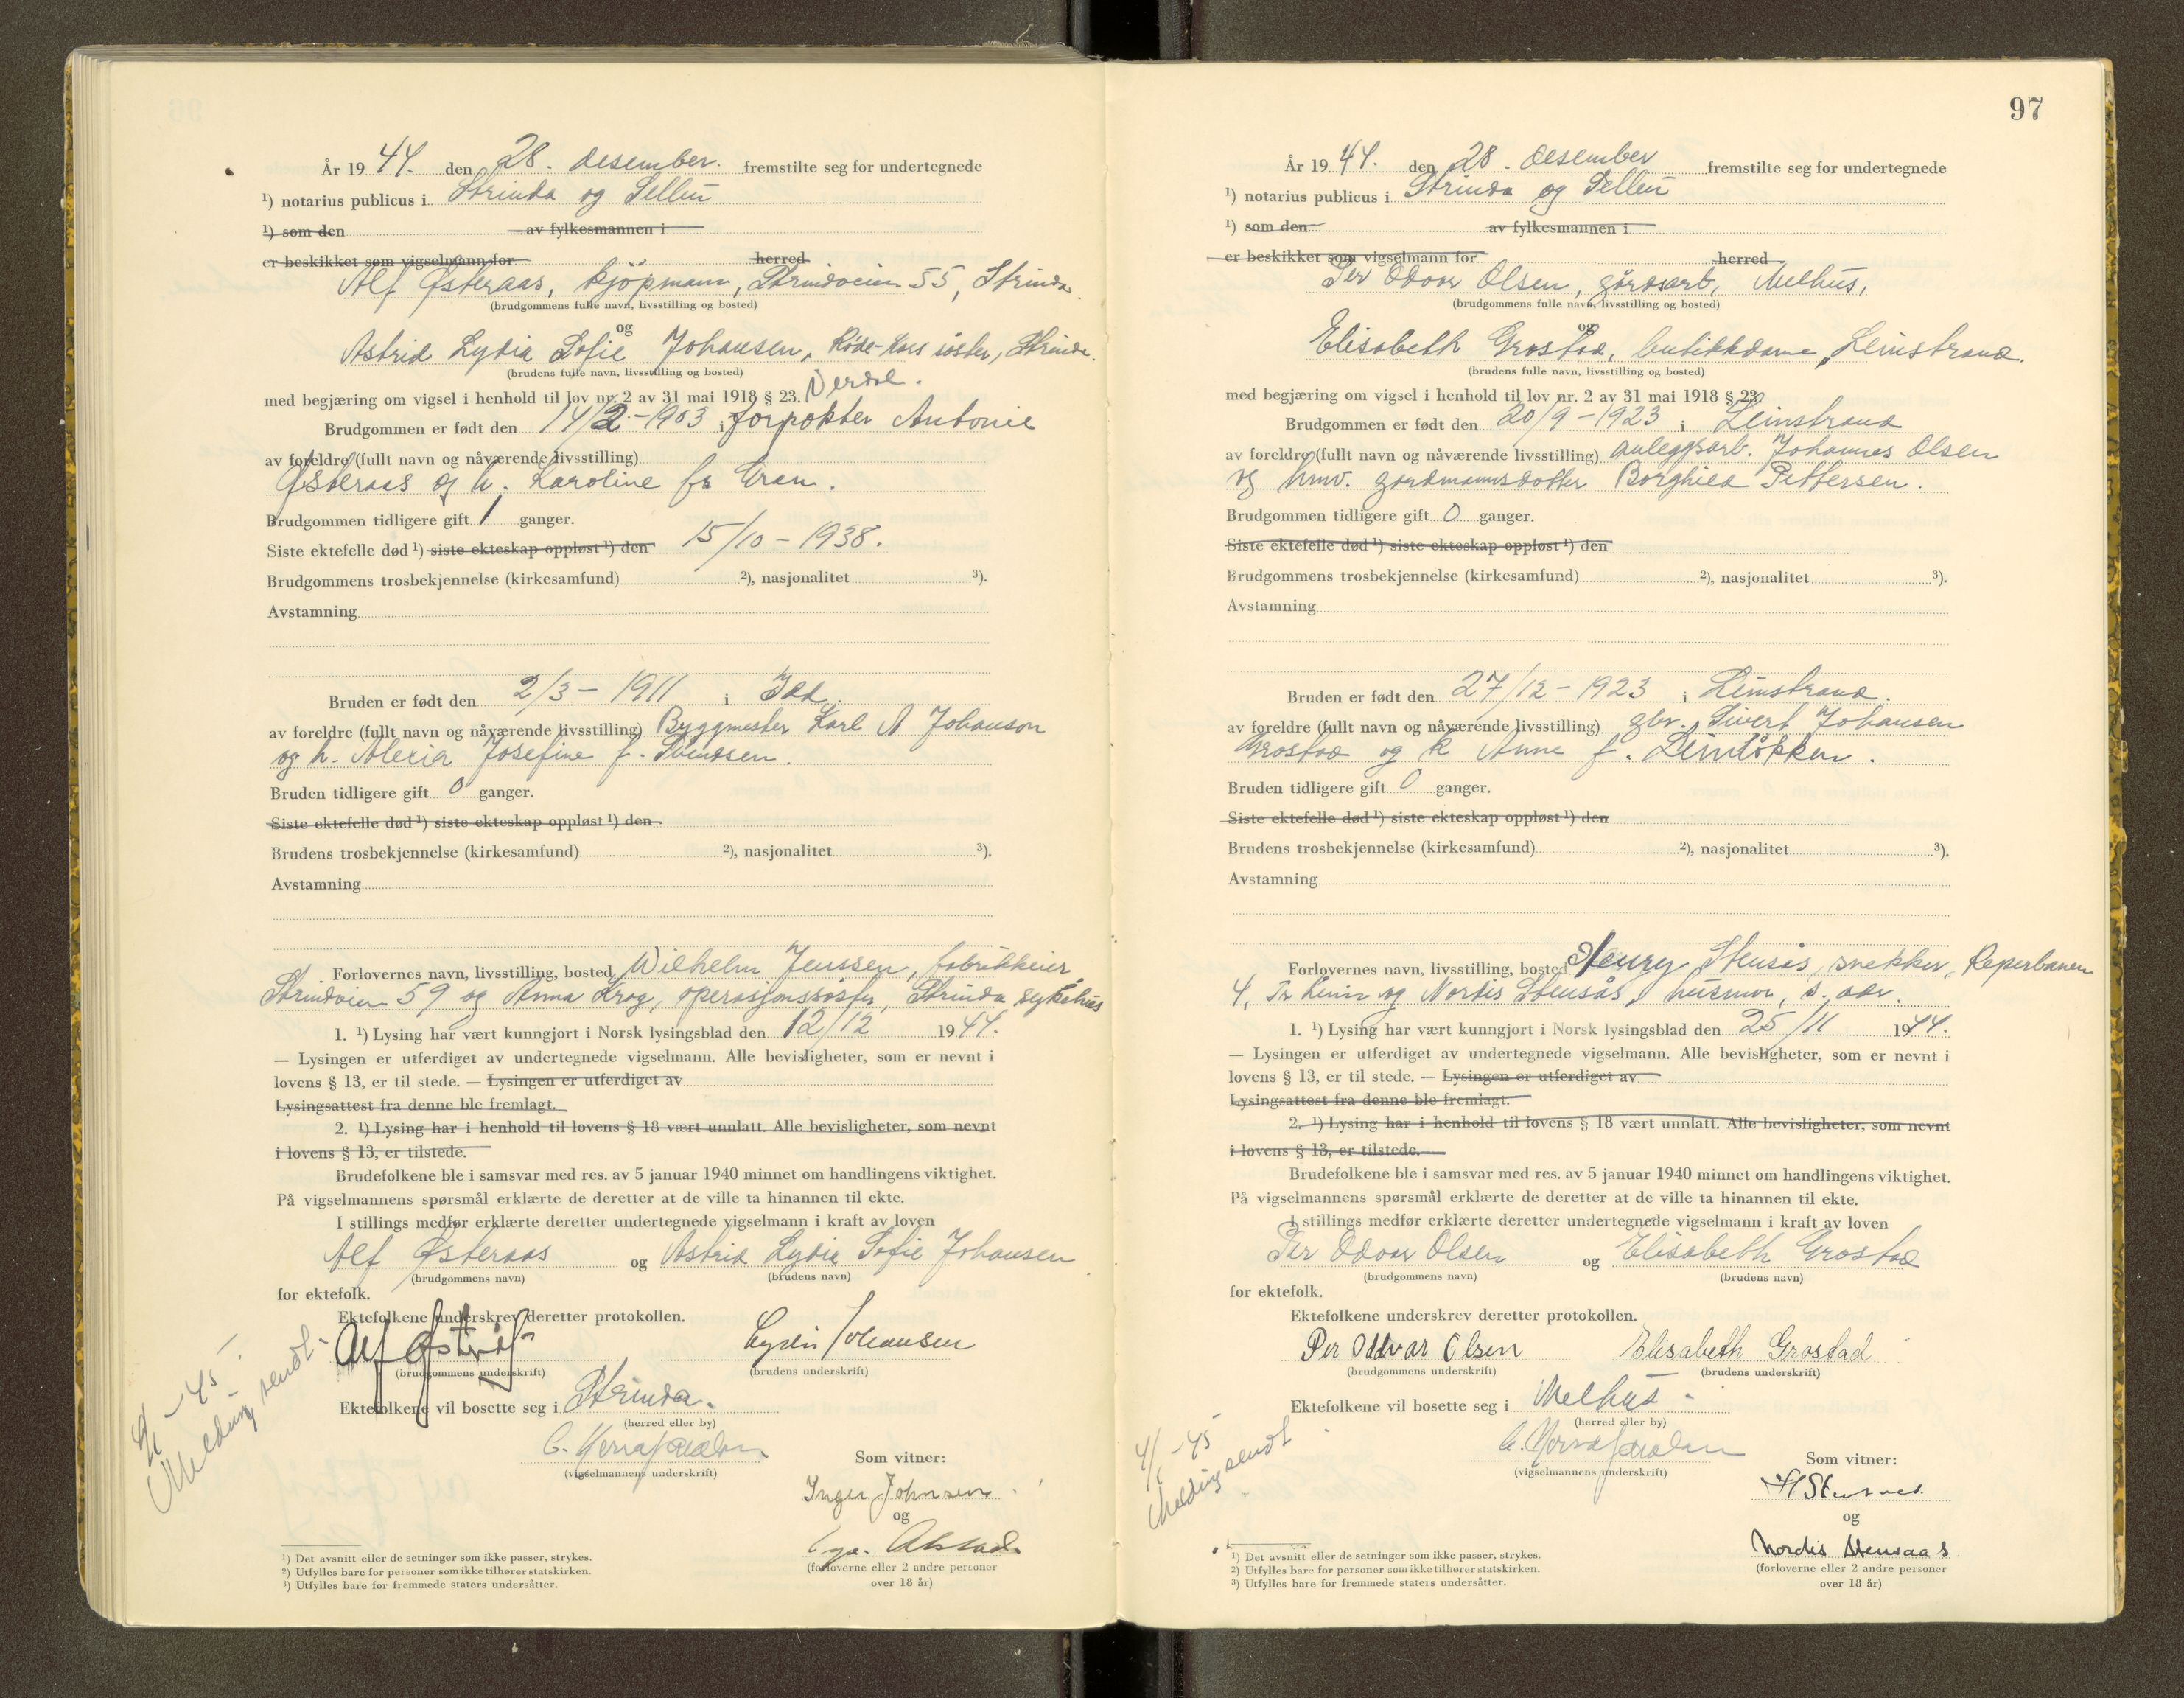 År 1944. den 28. desember. fremstilte seg for undertegnede
¹) notarius publicus i Strinda og Selbu
¹) som den av fylkesmannen i
er beskikket som vigselmann for herred
Alf Østeraas, kjöpmann, Strindveien 55, Strinda.
(brudgommens fulle navn, livsstilling og bosted)
og
Astrid Lydia Sofie Johansen, Røde-Kors søster, Strinda.
(brudens fulle navn, livsstilling og bosted)
med begjæring om vigsel i henhold til lov nr. 2 av 31 mai 1918 § 23.
Verdal.
Brudgommen er født den 14/2-1903 i forpakter Antonie
av foreldre (fullt navn og nåværende livsstilling)
Østeraas og h. Karoline f. Gran.
Brudgommen tidligere gift 1 ganger.
Siste ektefelle død ¹) siste ekteskap oppløst ¹) den 15/10-1938.
Brudgommens trosbekjennelse (kirkesamfund) ²), nasjonalitet ³).
Avstamning
Bruden er født den 2/3-1911 i Idd
av foreldre (fullt navn og nåværende livsstilling) Byggmester Karl A Johanson
og h. Alexia Josefine f. Svendsen.
Bruden tidligere gift 0 ganger.
Siste ektefelle død ¹) siste ekteskap oppløst ¹) den
Brudens trosbekjennelse (kirkesamfund) ²), nasjonalitet ³).
Avstamning
Forlovernes navn, livsstilling, bosted Wilhelm Jenssen, fabrikkeier
Strindveien 59 og Anna Krog, operasjonssøster, Strinda sykehus
1. ¹) Lysing har vært kunngjort i Norsk lysingsblad den 12/12 1944.
— Lysingen er utferdiget av undertegnede vigselmann. Alle bevisligheter, som er nevnt i
lovens § 13, er til stede. — Lysingen er utferdiget av
Lysingsattest fra denne ble fremlagt.
2. ¹) Lysing har i henhold til lovens § 18 vært unnlatt. Alle bevisligheter, som nevnt
i lovens § 13, er tilstede.
Brudefolkene ble i samsvar med res. av 5 januar 1940 minnet om handlingens viktighet.
På vigselmannens spørsmål erklærte de deretter at de ville ta hinannen til ekte.
I stillings medfør erklærte deretter undertegnede vigselmann i kraft av loven
Alf Østeraas og Astrid Lydia Sofie Johansen
(brudgommens navn) (brudens navn)
for ektefolk.
Ektefolkene underskrev deretter protokollen.
Alf Østerås Lydia Johansen
(brudgommens underskrift) (brudens underskrift)
Ektefolkene vil bosette seg i Strinda.
(herred eller by)
(vigselmannens underskrift)
Som vitner:
Inger Johnsen
og
Alstad
(forloverne eller 2 andre personer
over 18 år)
4/1-45
Melding sendt
¹) Det avsnitt eller de setninger som ikke passer, strykes.
²) Utfylles bare for personer som ikke tilhører statskirken.
³) Utfylles bare for fremmede staters undersåtter.
97
År 1944. den 28. desember fremstilte seg for undertegnede
¹) notarius publicus i Strinda og Selbu
¹) som den av fylkesmannen i
er beskikket som vigselmann for herred
Per Odvar Olsen, gårdsarb, Melhus,
(brudgommens fulle navn, livsstilling og bosted)
og
Elisabeth Grostad, butikkdame, Leinstrand.
(brudens fulle navn, livsstilling og bosted)
med begjæring om vigsel i henhold til lov nr. 2 av 31 mai 1918 § 23.
Brudgommen er født den 20/9-1923 i Leinstrand
av foreldre (fullt navn og nåværende livsstilling) anleggsarb. Johannes Olsen
og hmv. gardmannsdotter Borghild Pettersen.
Brudgommen tidligere gift 0 ganger.
Siste ektefelle død ¹) siste ekteskap oppløst ¹) den
Brudgommens trosbekjennelse (kirkesamfund) ²), nasjonalitet ³).
Avstamning
Bruden er født den 27/12-1923 i Leinstrand.
av foreldre (fullt navn og nåværende livsstilling) gbr. Sivert Johansen
Grostad og k Anne f. Leinløkken.
Bruden tidligere gift 0 ganger.
Siste ektefelle død ¹) siste ekteskap oppløst ¹) den
Brudens trosbekjennelse (kirkesamfund) ²), nasjonalitet ³).
Avstamning
Forlovernes navn, livsstilling, bosted Henry Stensås, snekker, Reperbanen
4, Tr.heim og Nordis Stensås, husmor, s. adr.
1. ¹) Lysing har vært kunngjort i Norsk lysingsblad den 25/11 1944.
— Lysingen er utferdiget av undertegnede vigselmann. Alle bevisligheter, som er nevnt i
lovens § 13, er til stede. — Lysingen er utferdiget av
Lysingsattest fra denne ble fremlagt.
2. ¹) Lysing har i henhold til lovens § 18 vært unnlatt. Alle bevisligheter, som nevnt
i lovens § 13, er tilstede.
Brudefolkene ble i samsvar med res. av 5 januar 1940 minnet om handlingens viktighet.
På vigselmannens spørsmål erklærte de deretter at de ville ta hinannen til ekte.
I stillings medfør erklærte deretter undertegnede vigselmann i kraft av loven
Per Odvar Olsen og Elisabeth Grostad
(brudgommens navn) (brudens navn)
for ektefolk.
Ektefolkene underskrev deretter protokollen.
Per Oddvar Olsen Elisabeth Grostad
(brudgommens underskrift) (brudens underskrift)
Ektefolkene vil bosette seg i Melhus
(herred eller by)
(vigselmannens underskrift)
Som vitner:
H Stensaas
og
Nordis Stensaas
(forloverne eller 2 andre personer
over 18 år)
4/1-45
Melding sendt
¹) Det avsnitt eller de setninger som ikke passer, strykes.
²) Utfylles bare for personer som ikke tilhører statskirken.
³) Utfylles bare for fremmede staters undersåtter.